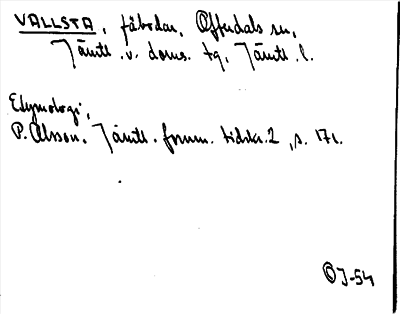 VALLSTA, fäbodar, Offerdals sn,
Jämtl. v. doms. tg, Jämtl. l.
Etymologi,
P. Olsson, Jämtl. fornm. tidskr. 2, s. 171.
OJ-54